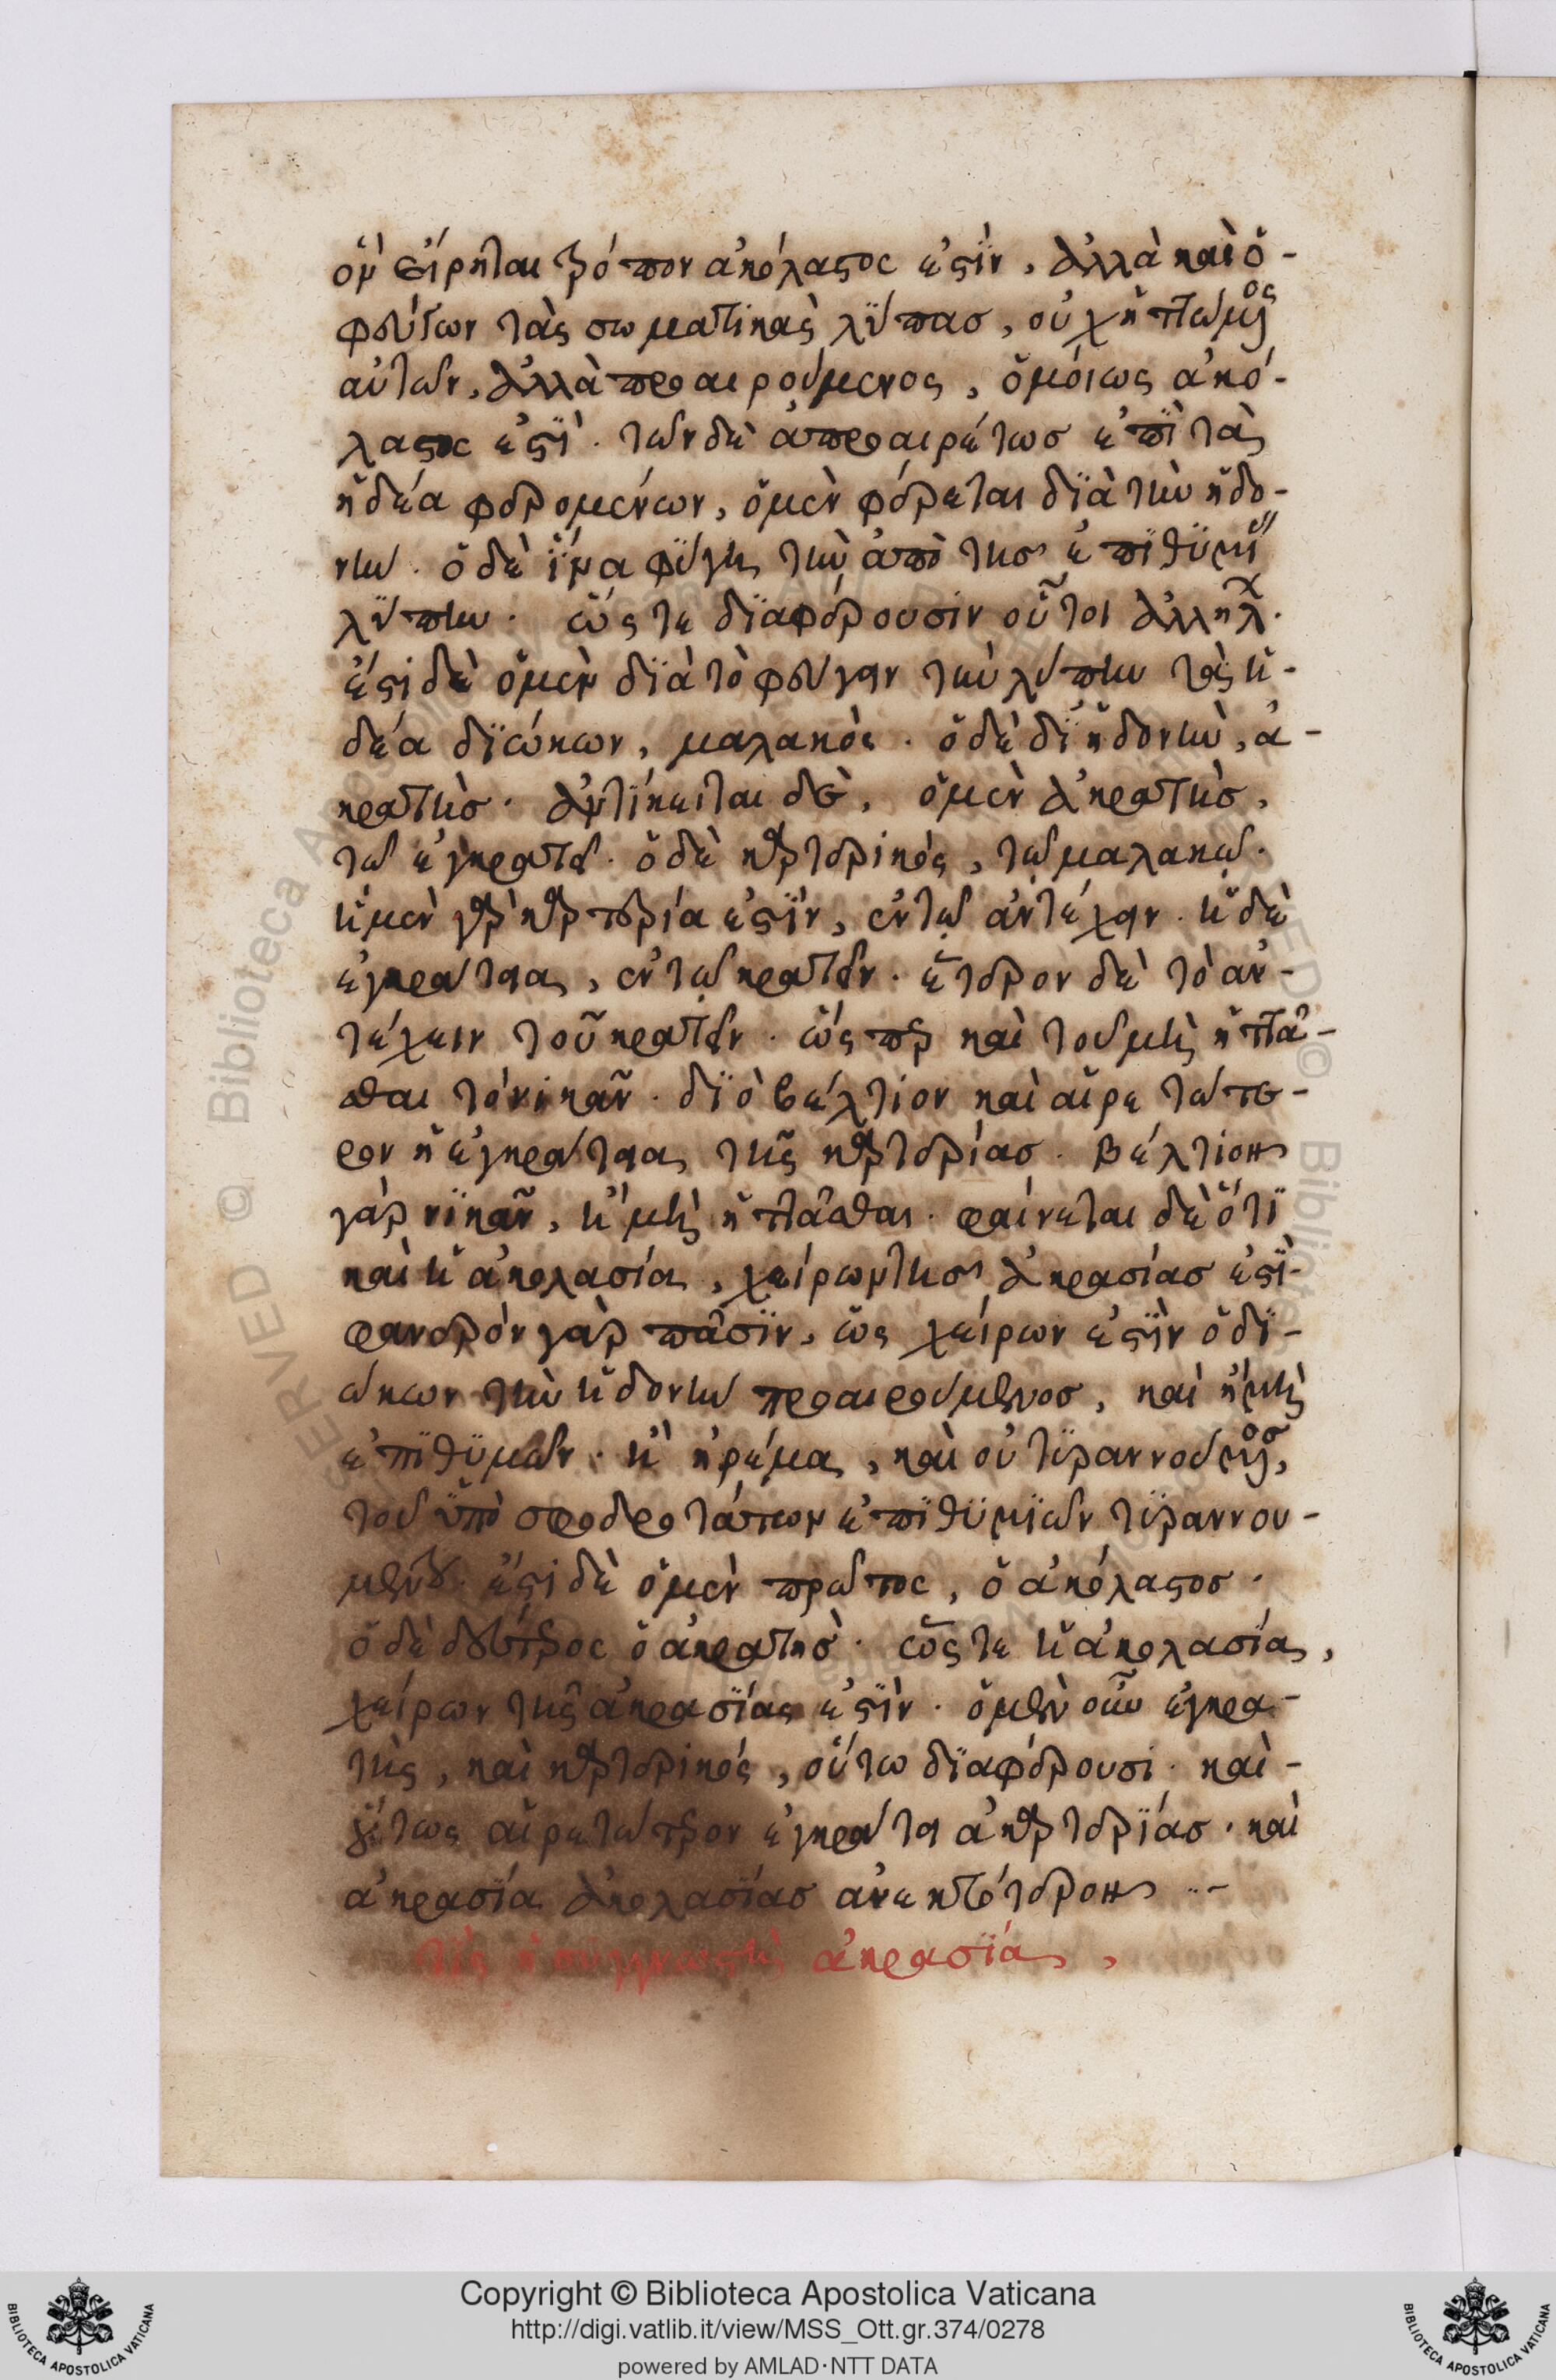 ὃν εἴρηται τρόπον ἀκόλαστος ἐστὶν, ἀλλὰ καὶ ὁ -
φεύγων τὰς σωματικὰς λύπας, οὐχ ἡττώμενος
αὐτῶν, ἀλλὰ προαιρούμενος, ὁμοίως ἀκό -
λαστος ἐστὶ. τῶν δὲ ἀπροαιρέτως ἐπὶ τὰ
ἡδέα φερομένων, ὁ μὲν φέρεται διὰ τὴν ἡδο -
νήν. ὁ δὲ ἵνα φύγῃ τὴν ἀπὸ τῆς ἐπιθυμί
λύπην. ὥστε διαφέρουσιν οὗτοι ἀλλήλ.
ἔστι δὲ ὁ μὲν διὰ τὸ φεύγειν τὴν λύπην τὰ ἡ -
δέα διώκων, μαλακός. ὁ δὲ δι' ἡδονὴν, ἀ -
κρατὴς. ἀντίκειται δὲ, ὁ μὲν ἀκρατὴς,
τῷ ἐγκρατεῖ. ὁ δὲ καρτερικός, τῷ μαλακῷ.
ἡ μὲν γὰρ καρτερία ἐστὶν, ἐν τῷ ἀντέχειν. ἡ δὲ
ἐγκράτεια, ἐν τῷ κρατεῖν. ἕτερον δὲ τὸ ἀν -
τέχειν τοῦ κρατεῖν. ὥσπερ καὶ τοῦ μὴ ἡττᾶ -
σθαι τὸ νικᾶν. διὸ βέλτιον καὶ αἱρετώτε -
ρον ἡ ἐγκράτεια τῆς καρτερίας. βέλτιον
γὰρ νικᾶν, ἢ μὴ ἡττᾶσθαι. φαίνεται δὲ ὅτι
καὶ ἡ ἀκολασία, χείρων τῆς ἀκρασίας ἐστὶ.
φανερὸν γὰρ πᾶσιν, ὡς χείρων ἐστὶν ὁ δι -
ώκων τὴν ἡδονὴν προαιρούμενος, καὶ ἢ μὴ
ἐπιθυμῶν. ἢ ἠρέμα, καὶ οὐ τυραννούμενος,
τοῦ ὑπὸ σφοδροτάτων ἐπιθυμιῶν τυραννου -
μένου. ἔστι δὲ ὁ μὲν πρῶτος, ὁ ἀκόλαστος.
ὁ δὲ δεύτερος ὁ ἀκρατὴς. ὥστε ἡ ἀκολασία,
χείρων τῆς ἀκρασίας ἐστὶν. ὁ μὲν οὖν ἐγκρα -
τὴς, καὶ καρτερικός, οὕτω διαφέρουσι. καὶ -
οὕτως αἱρετώτερον ἐγκράτεια καρτερίας. καὶ
ἀκρασία ἀκολασίας ἀνεκτότερον ..-
Τίς ἡ συγγνωστὴ ἀκρασία,
Copyright © Biblioteca Apostolica Vaticana
http://digi.vatlib.it/view/MSS_Ott.gr.374/0278
powered by AMLAD·NTT DATA
BIBLIOTECA APOSTOLICA VATICANA
BIBLIOTECA APOSTOLICA VATICANA